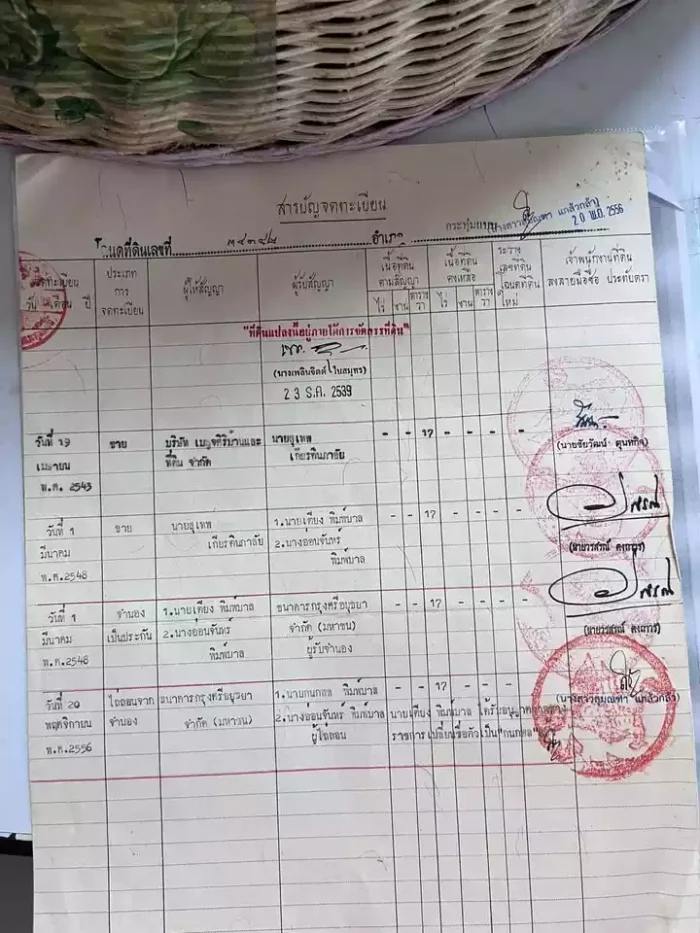 สารบัญจดทะเบียน
กระทุ่มแบน
20 พ.ย. 2556
โฉนดที่ดินเลขที่ อำเภอ
จดทะเบียน วัน เดือน ปี
ประเภทการจดทะเบียน
ผู้ให้สัญญา
ผู้รับสัญญา
เนื้อที่ดินตามสัญญา
ไร่ งาน ตารางวา
เนื้อที่ดินคงเหลือ
ไร่ งาน ตารางวา
ระวาง เลขที่ดิน โฉนดที่ดินใหม่
เจ้าพนักงานที่ดิน
ลงลายมือชื่อ ประทับตรา
"ที่ดินแปลงนี้อยู่ภายใต้การจัดสรรที่ดิน"
(นางเพลินจิตต์ ใบสมุทร)
23 ธ.ค. 2539
วันที่ 19 ขาย บริษัท เบญจศิริบ้านและ นายยุเทพ - - 17 - - - -
เมษายน ที่ดิน จำกัด เกียรติ
พ.ศ. 2543
(นายชัยวัฒน์
วันที่ 1 ขาย นายยุเทพ 1.นายเคียง พิมพ์บาล - - 17 - - - -
มีนาคม 2.นางอ่อนจันทร์
พ.ศ.2548 พิมพ์บาล
(นายวรสรณ์
วันที่ 1 จำนอง 1.นายเคียง พิมพ์บาล ธนาคารกรุงศรีอยุธยา - - 17 - - - -
มีนาคม เป็นประกัน 2.นางอ่อนจันทร์ จำกัด (มหาชน)
พ.ศ.2548 พิมพ์บาล ผู้รับจำนอง
(นายวรสรณ์
วันที่ 20 ไถ่ถอนจาก ธนาคารกรุงศรีอยุธยา 1.นายกนกพล พิมพ์บาล - - 17 - - - -
พฤศจิกายน จำนอง จำกัด (มหาชน) 2.นางอ่อนจันทร์ พิมพ์บาล นายเคียง พิมพ์บาล ได้รับอนุญาต
พ.ศ.2556 ผู้ไถ่ถอน ราชการ เปลี่ยนชื่อตัวเป็น "กนกพล"
แก้วกล้า)